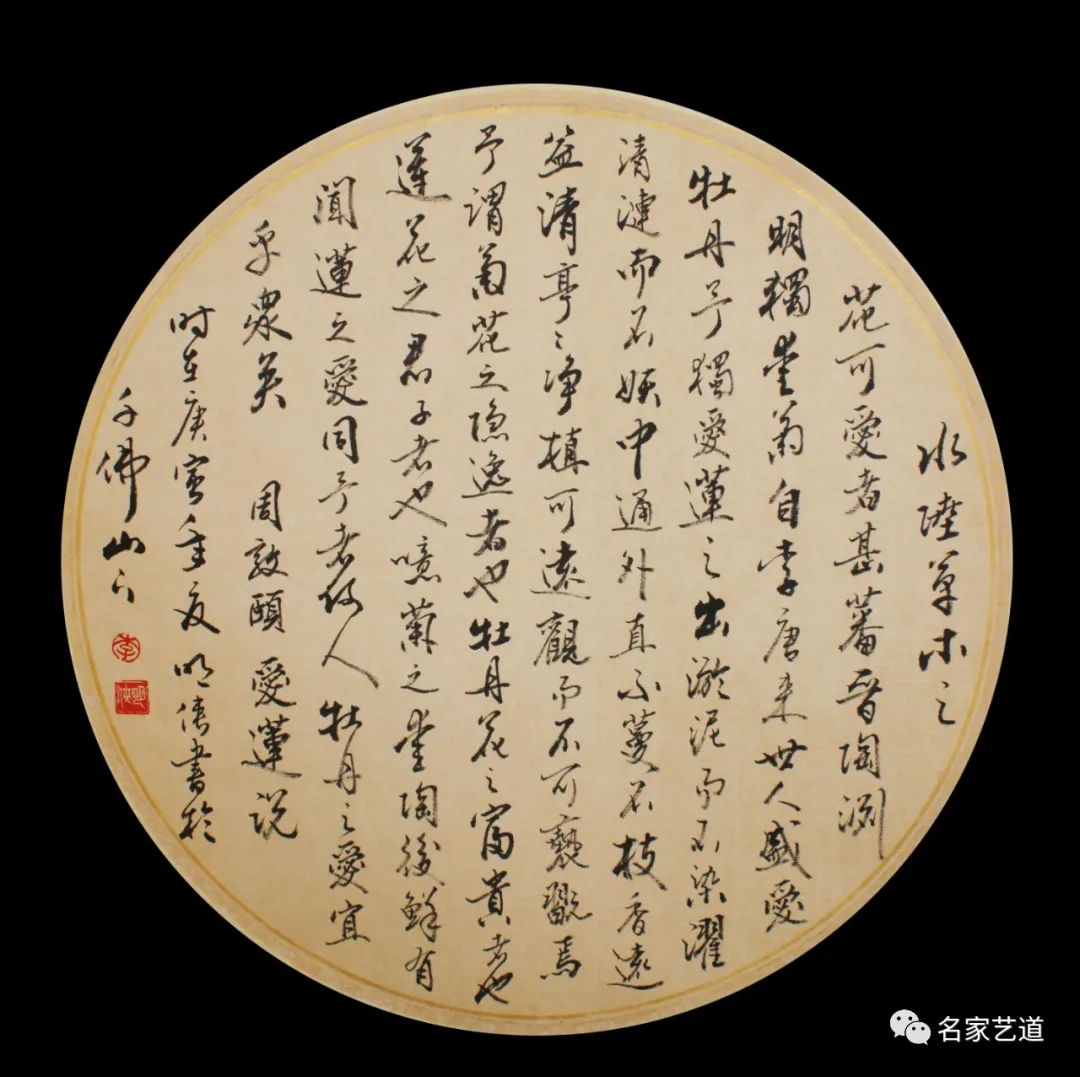 水陸草木之
花可愛者甚蕃晉陶渊
明獨愛菊自李唐来世人盛愛
牡丹予獨愛蓮之出淤泥而不染濯
清漣而不妖中通外直不蔓不枝香遠
益清亭〻净植可遠觀而不可褻翫焉
予謂菊花之隐逸者也牡丹花之富貴者也
蓮花之君子者也噫菊之愛陶後鮮有
聞蓮之愛同予者何人牡丹之愛宜
乎衆矣 周敦頤 愛蓮说
时在庚寅年夏 明俊書於
千佛山下
名家艺道